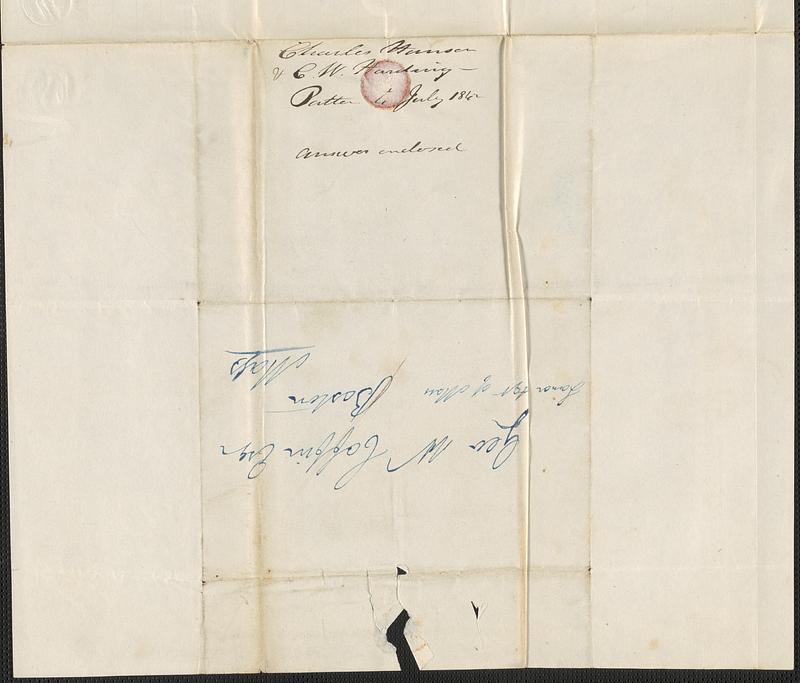 Charles Hanson
& C. W. Harding –
Patten 4 July 184
answer enclosed
Geo W Coffin Esqr
Land Agt of Mass
Boston
Mass